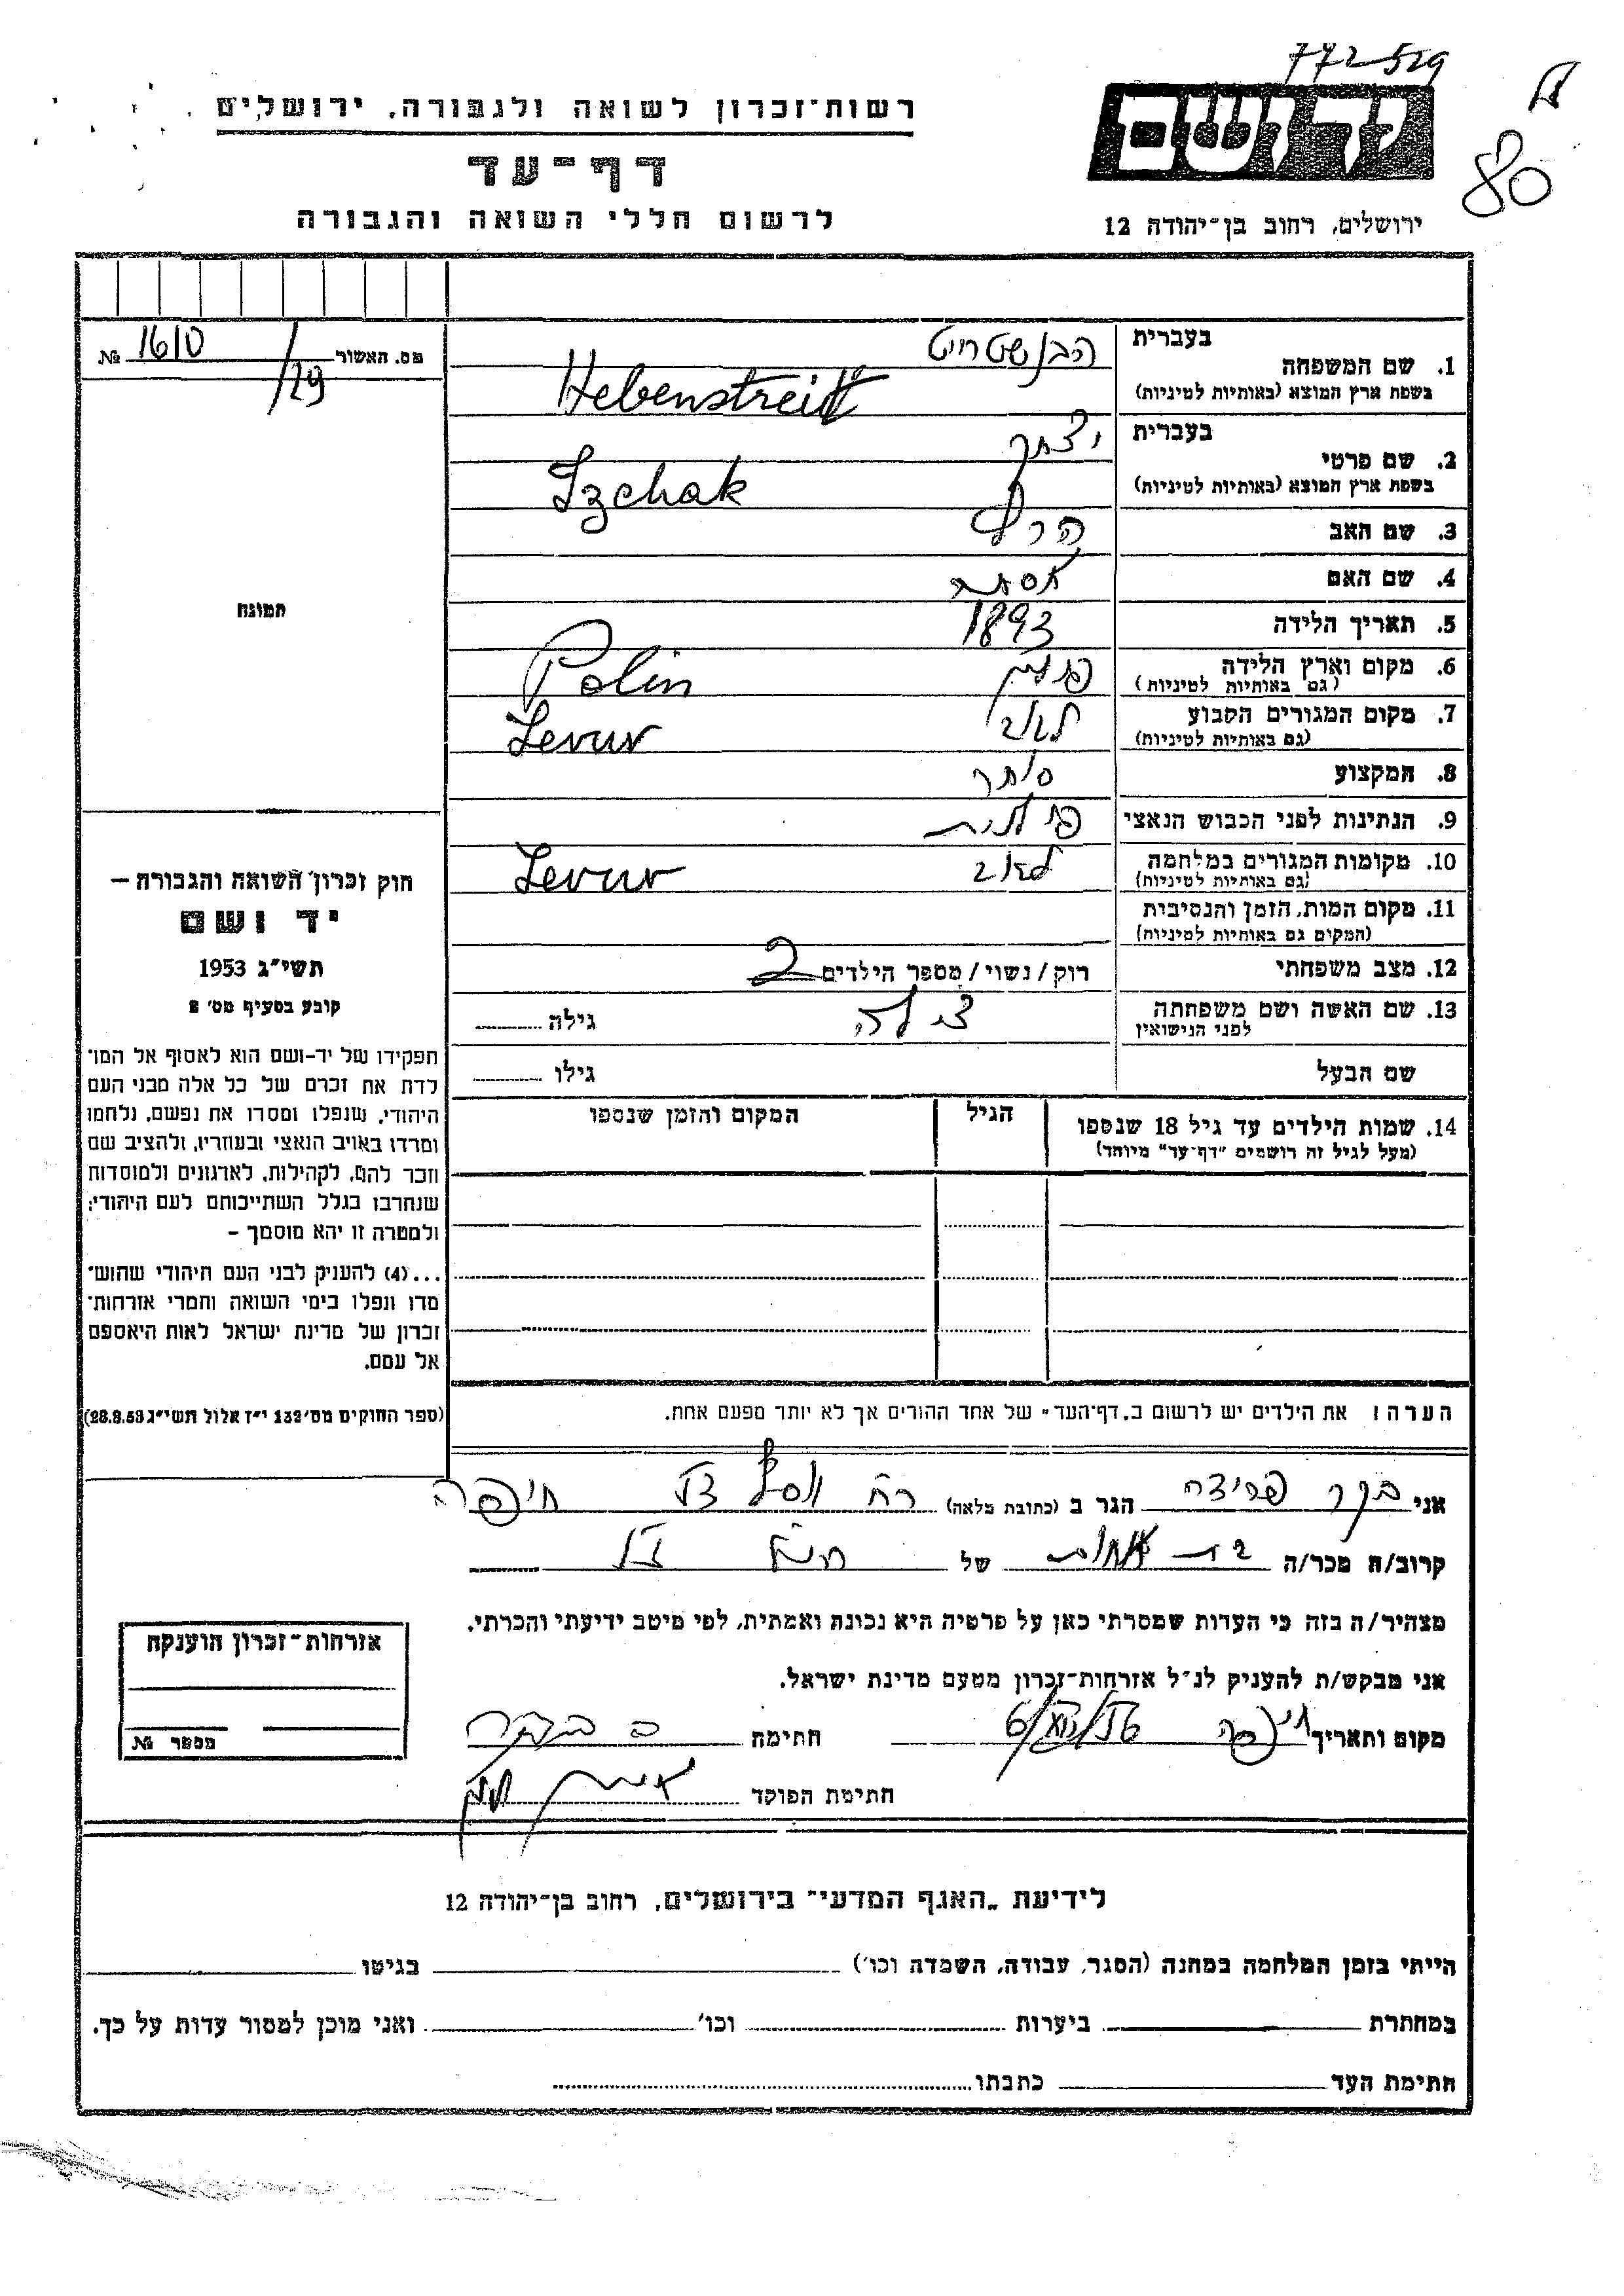 772529
80
יד ושם
ירושלים, רחוב בן-יהודה 12
רשות-זכרון לשואה ולגבורה, ירושלים
דף-עד
לרשום חללי השואה והגבורה
מס. האשור 1610/29 №
תמונה
1. שם המשפחה בעברית הבנשטריט
בשפת ארץ המוצא (באותיות לטיניות) Hebenstreit
2. שם פרטי בעברית יצחק
בשפת ארץ המוצא (באותיות לטיניות) Izchak
3. שם האב הרש
4. שם האם אסתר
5. תאריך הלידה 1893
6. מקום וארץ הלידה פולין Polin
(גם באותיות לטיניות)
7. מקום המגורים הקבוע לבוב Levuv
(גם באותיות לטיניות)
8. המקצוע סוחר
9. הנתינות לפני הכבוש הנאצי פולנית
10. מקומות המגורים במלחמה לבוב Levuv
(גם באותיות לטיניות)
11. מקום המות, הזמן והנסיבות
(המקום גם באותיות לטיניות)
12. מצב משפחתי רוק/נשוי/מספר הילדים 2
13. שם האשה ושם משפחתה צילה גילה
לפני הנישואין
שם הבעל גילו
14. שמות הילדים עד גיל 18 שנספו הגיל המקום והזמן שנספו
(מעל לגיל זה רושמים "דף-עד" מיוחד)
הערה! את הילדים יש לרשום ב„דף-העד" של אחד ההורים אך לא יותר מפעם אחת.
חוק זכרון השואה והגבורה —
יד ושם
תשי"ג 1953
קובע בסעיף מס' 2
תפקידו של יד-ושם הוא לאסוף אל המו-
לדת את זכרם של כל אלה מבני העם
היהודי, שנפלו ומסרו את נפשם, נלחמו
ומרדו באויב הנאצי ובעוזריו, ולהציב שם
וזכר להם, לקהילות, לארגונים ולמוסדות
שנחרבו בגלל השתייכותם לעם היהודי;
ולמטרה זו יהא מוסמך –
...(4) להעניק לבני העם היהודי שהוש-
מדו ונפלו בימי השואה והמרי אזרחות-
זכרון של מדינת ישראל לאות היאספם
אל עמם.
(ספר החוקים מס' 132 י"ז אלול תשי"ג 28.8.53)
אני פרידה הגר ב (כתובת מלאה) רח חיפה
קרוב/ה מכר/ה בת אחות של
מצהיר/ה בזה כי העדות שמסרתי כאן על פרטיה היא נכונה ואמתית, לפי מיטב ידיעתי והכרתי.
אני מבקש/ת להעניק לנ"ל אזרחות-זכרון מטעם מדינת ישראל.
מקום ותאריך חיפה חתימה
חתימת הפוקד
אזרחות-זכרון הוענקה
מספר №
לידיעת „האגף המדעי" בירושלים, רחוב בן-יהודה 12
הייתי בזמן המלחמה במחנה (הסגר, עבודה, השמדה וכו') בגיטו
במחתרת ביערות וכו' ואני מוכן למסור עדות על כך.
חתימת העד כתבתו